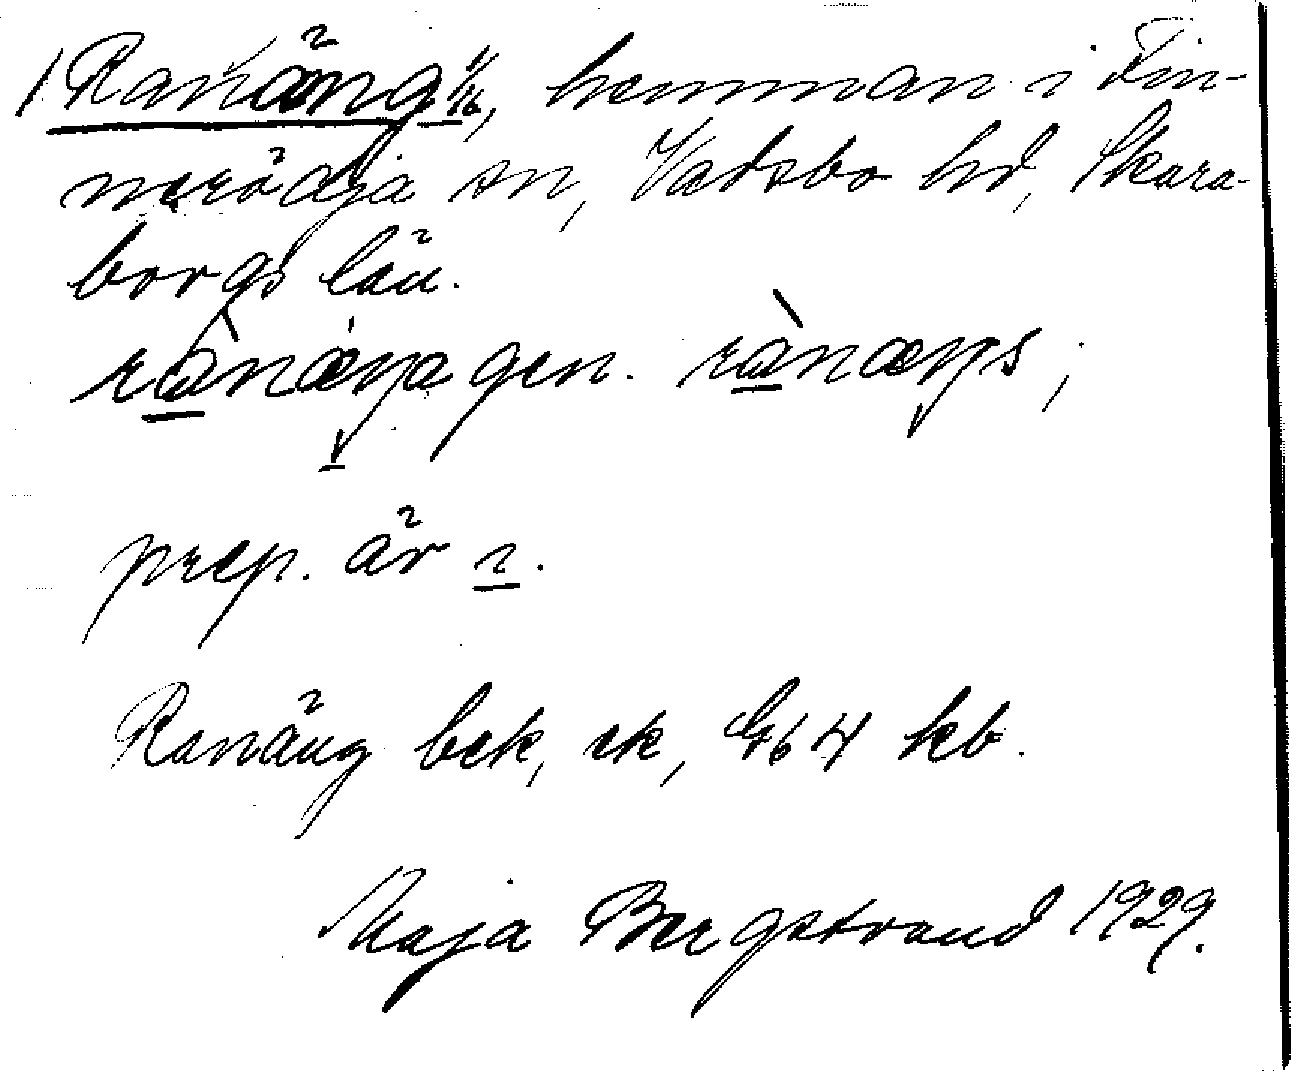 1 Ranäng 1/16, hemman i Fin-
nerödja sn, Vadsbo hd, Skara-
borgs län.
rànæŋa gen. rànæŋs;
prep. är ı.
Ranäng bek, ek, Gb 4 kb.
Maja Bergstrand 1929.